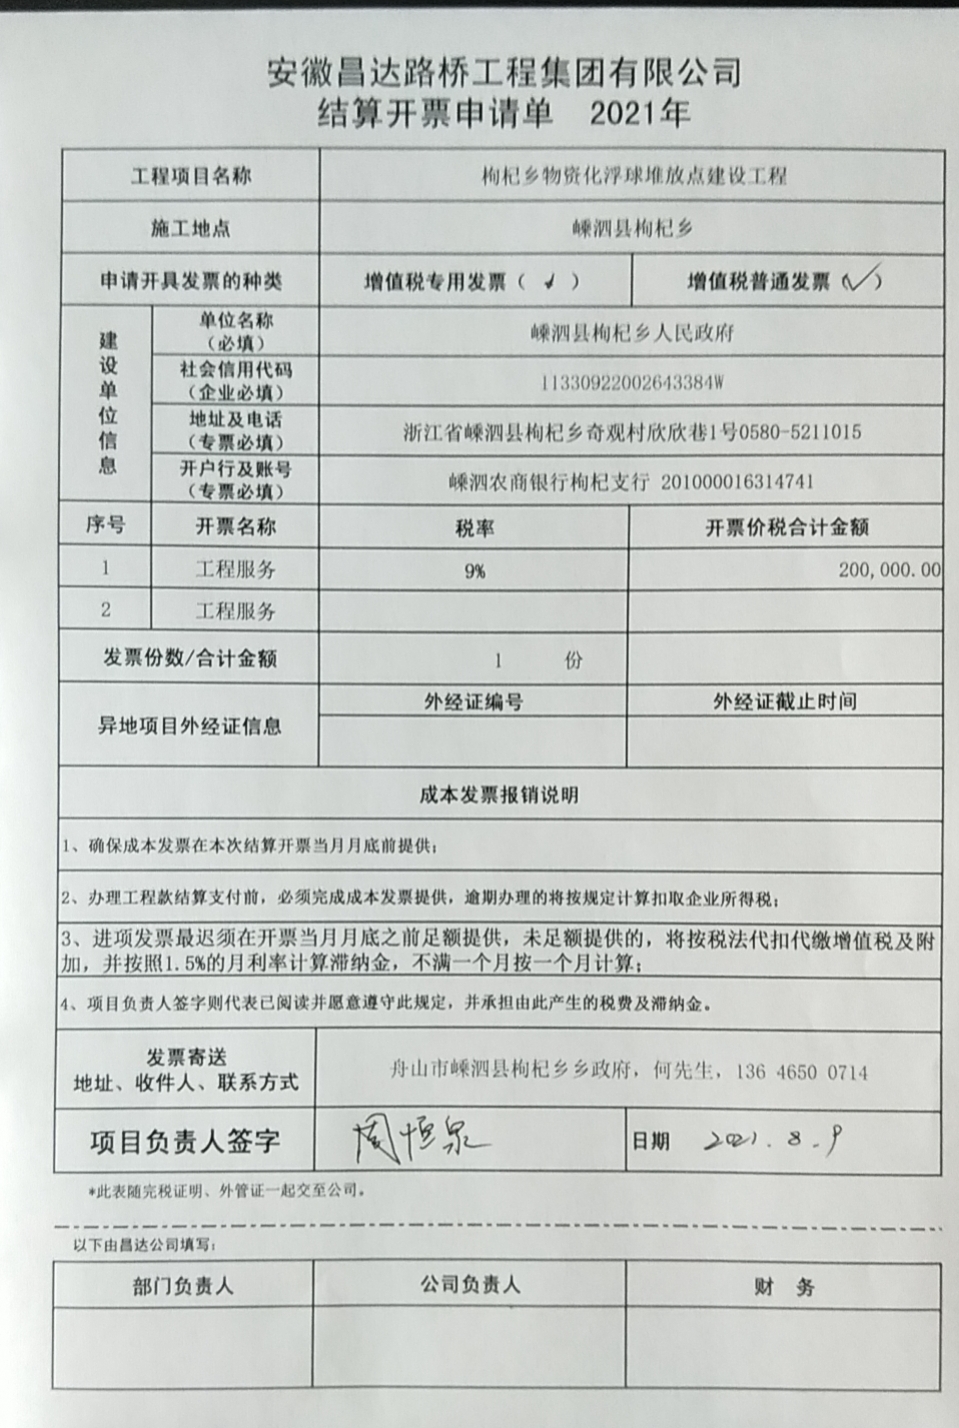 安徽昌达路桥工程集团有限公司
结算开票申请单 2021年
工程项目名称 枸杞乡物资化浮球堆放点建设工程
施工地点 嵊泗县枸杞乡
申请开具发票的种类 增值税专用发票（ ✓ ） 增值税普通发票（✓）
建设单位信息
单位名称
（必填）
嵊泗县枸杞乡人民政府
社会信用代码
（企业必填）
11330922002643384W
地址及电话
（专票必填）
浙江省嵊泗县枸杞乡奇观村欣欣巷1号0580-5211015
开户行及账号
（专票必填）
嵊泗农商银行枸杞支行 201000016314741
序号 开票名称 税率 开票价税合计金额
1 工程服务 9% 200,000.00
2 工程服务
发票份数/合计金额 1 份
异地项目外经证信息
外经证编号 外经证截止时间
成本发票报销说明
1、确保成本发票在本次结算开票当月月底前提供；
2、办理工程款结算支付前，必须完成成本发票提供，逾期办理的将按规定计算扣取企业所得税；
3、进项发票最迟须在开票当月月底之前足额提供，未足额提供的，将按税法代扣代缴增值税及附
加，并按照1.5%的月利率计算滞纳金，不满一个月按一个月计算；
4、项目负责人签字则代表已阅读并愿意遵守此规定，并承担由此产生的税费及滞纳金。
发票寄送
地址、收件人、联系方式
舟山市嵊泗县枸杞乡乡政府，何先生，136 4650 0714
项目负责人签字 周恒泉 日期 2021.8.9
*此表随完税证明、外管证一起交至公司。
以下由昌达公司填写：
部门负责人 公司负责人 财 务